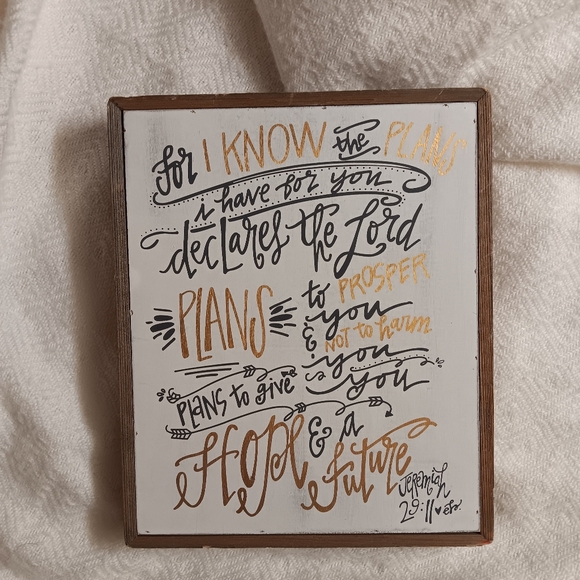 for I KNOW the PLANS
i have for you
declares the Lord
PLANS to PROSPER
you
& NOT to harm
you
PLANS to give you
Hope & a
future
Jeremiah
29:11